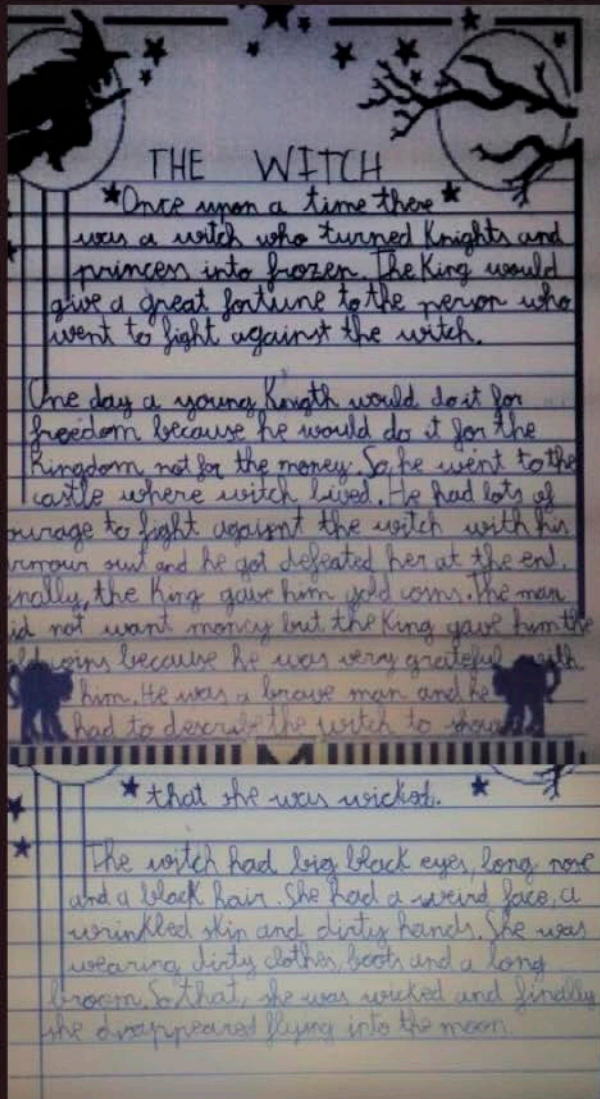 THE WITCH
Once upon a time there
was a witch who turned Knights and
princess into frozen. The King would
give a great fortune to the person who
went to fight against the witch.
One day a young Knigth would do it for
freedom because he would do it for the
Kingdom not for the money. So, he went to the
castle where witch lived. He had lots of
ourage to fight against the witch with his
rmour suit and he got defeated her at the end.
nally, the King gave him gold coins. The man
id not want money but the King gave him the
ld coins because he was very grateful with
him. He was a brave man and he
had to describe the witch to show
that she was wicked.
The witch had big black eyes, long nose
and a black hair. She had a weird face, a
wrinkled skin and dirty hands. She was
wearing dirty clothes, boots and a long
broom. So that, she was wicked and finally
she disappeared flying into the moon.